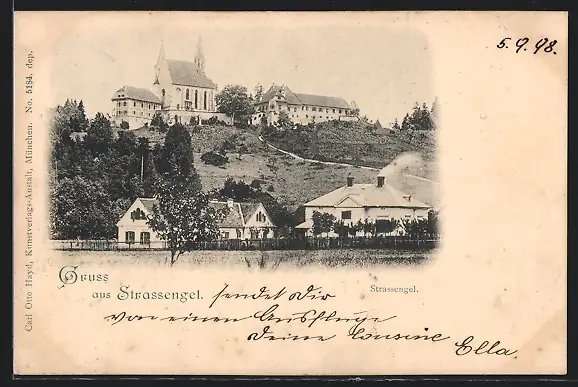 5. 9. 98.
Carl Otto Hayd, Kunstverlags-Anstalt, München. No. 5184. dep.
Gruss
aus Strassengel. sendet Dir
Strassengel.
von einem Ausfluge
Deine Cousine
Ella